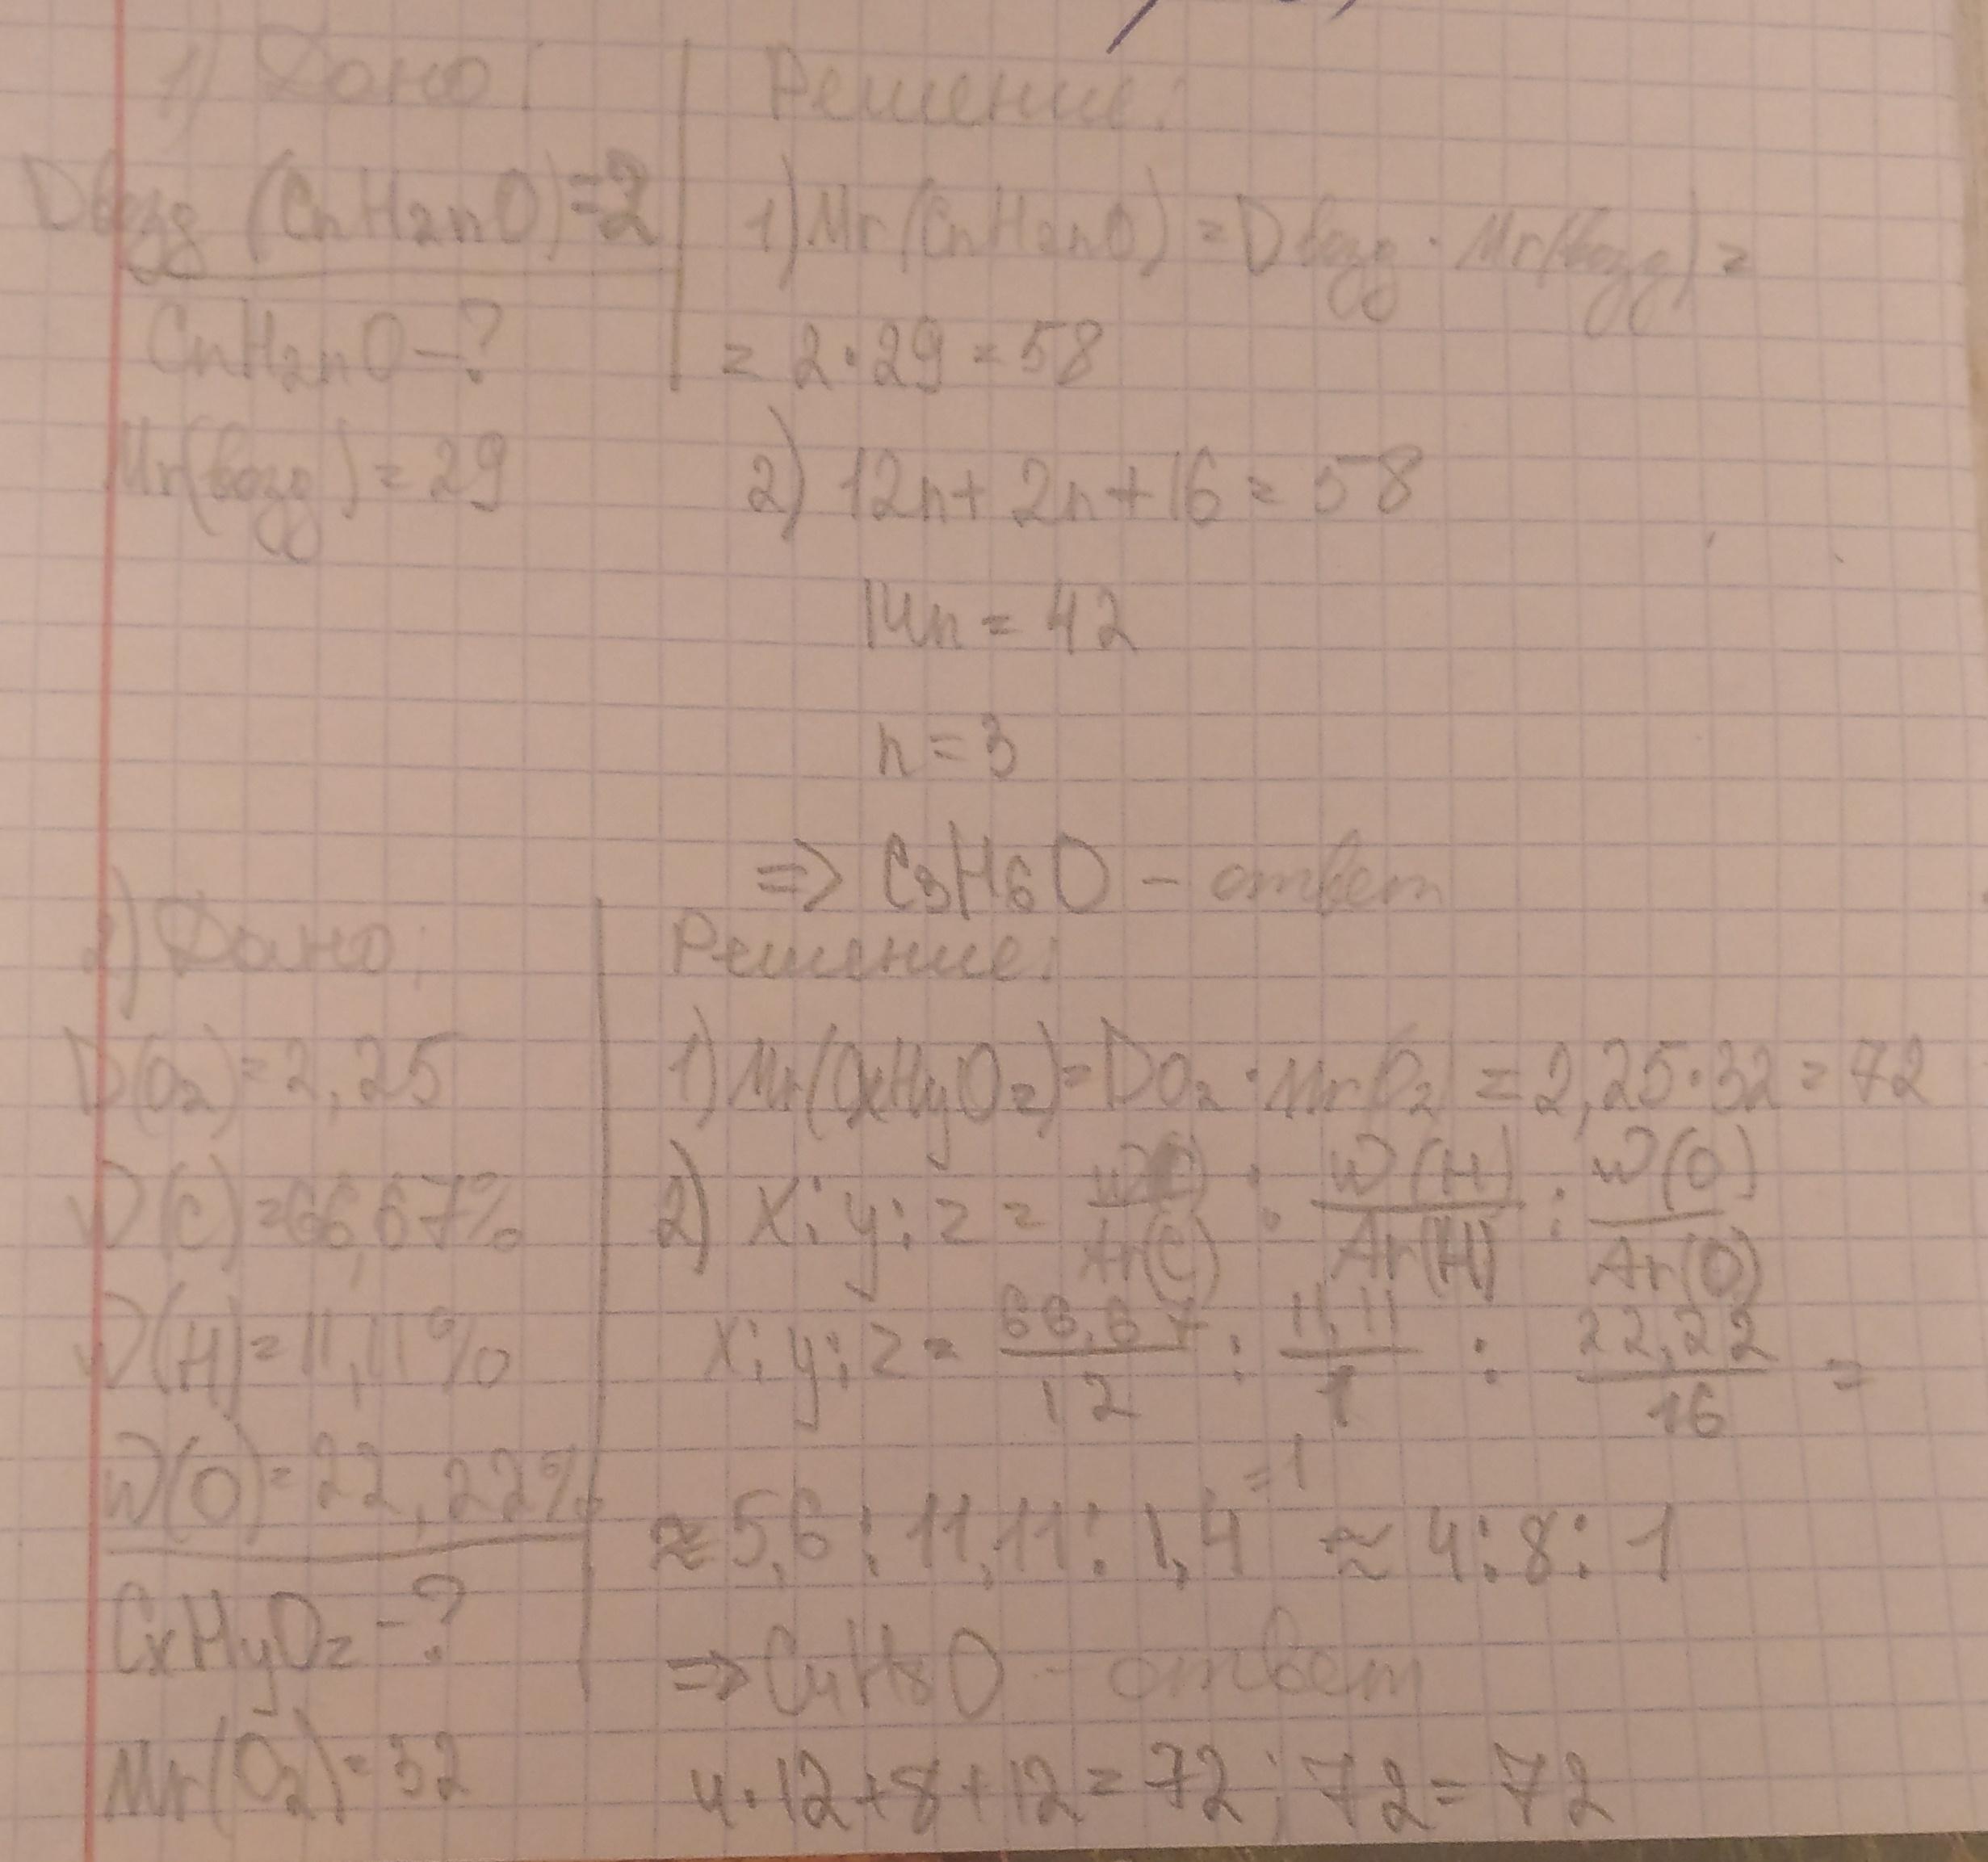 1) Дано:
Dвозд (CnH2nO)=2
CnH2nO-?
Mr(возд)=29
Решение:
1) Mr(CnH2nO) = Dвозд · Mr(возд) =
= 2·29=58
2) 12n+2n+16=58
14n=42
n=3
=> C3H6O - ответ
2) Дано:
D(O2)=2,25
W(C)=66,67%
W(H)=11,11%
W(O)=22,22%
CxHyOz-?
Mr(O2)=32
Решение:
1) Mr(CxHyOz)=DO2·MrO2=2,25·32=72
2) x:y:z = W(C)/Ar(C) : W(H)/Ar(H) : W(O)/Ar(O)
x:y:z = 66,67/12 : 11,11/1 : 22,22/16 =
=1
≈5,6:11,11:1,4 ≈ 4:8:1
=> C4H8O - ответ
4·12+8+12=72; 72=72